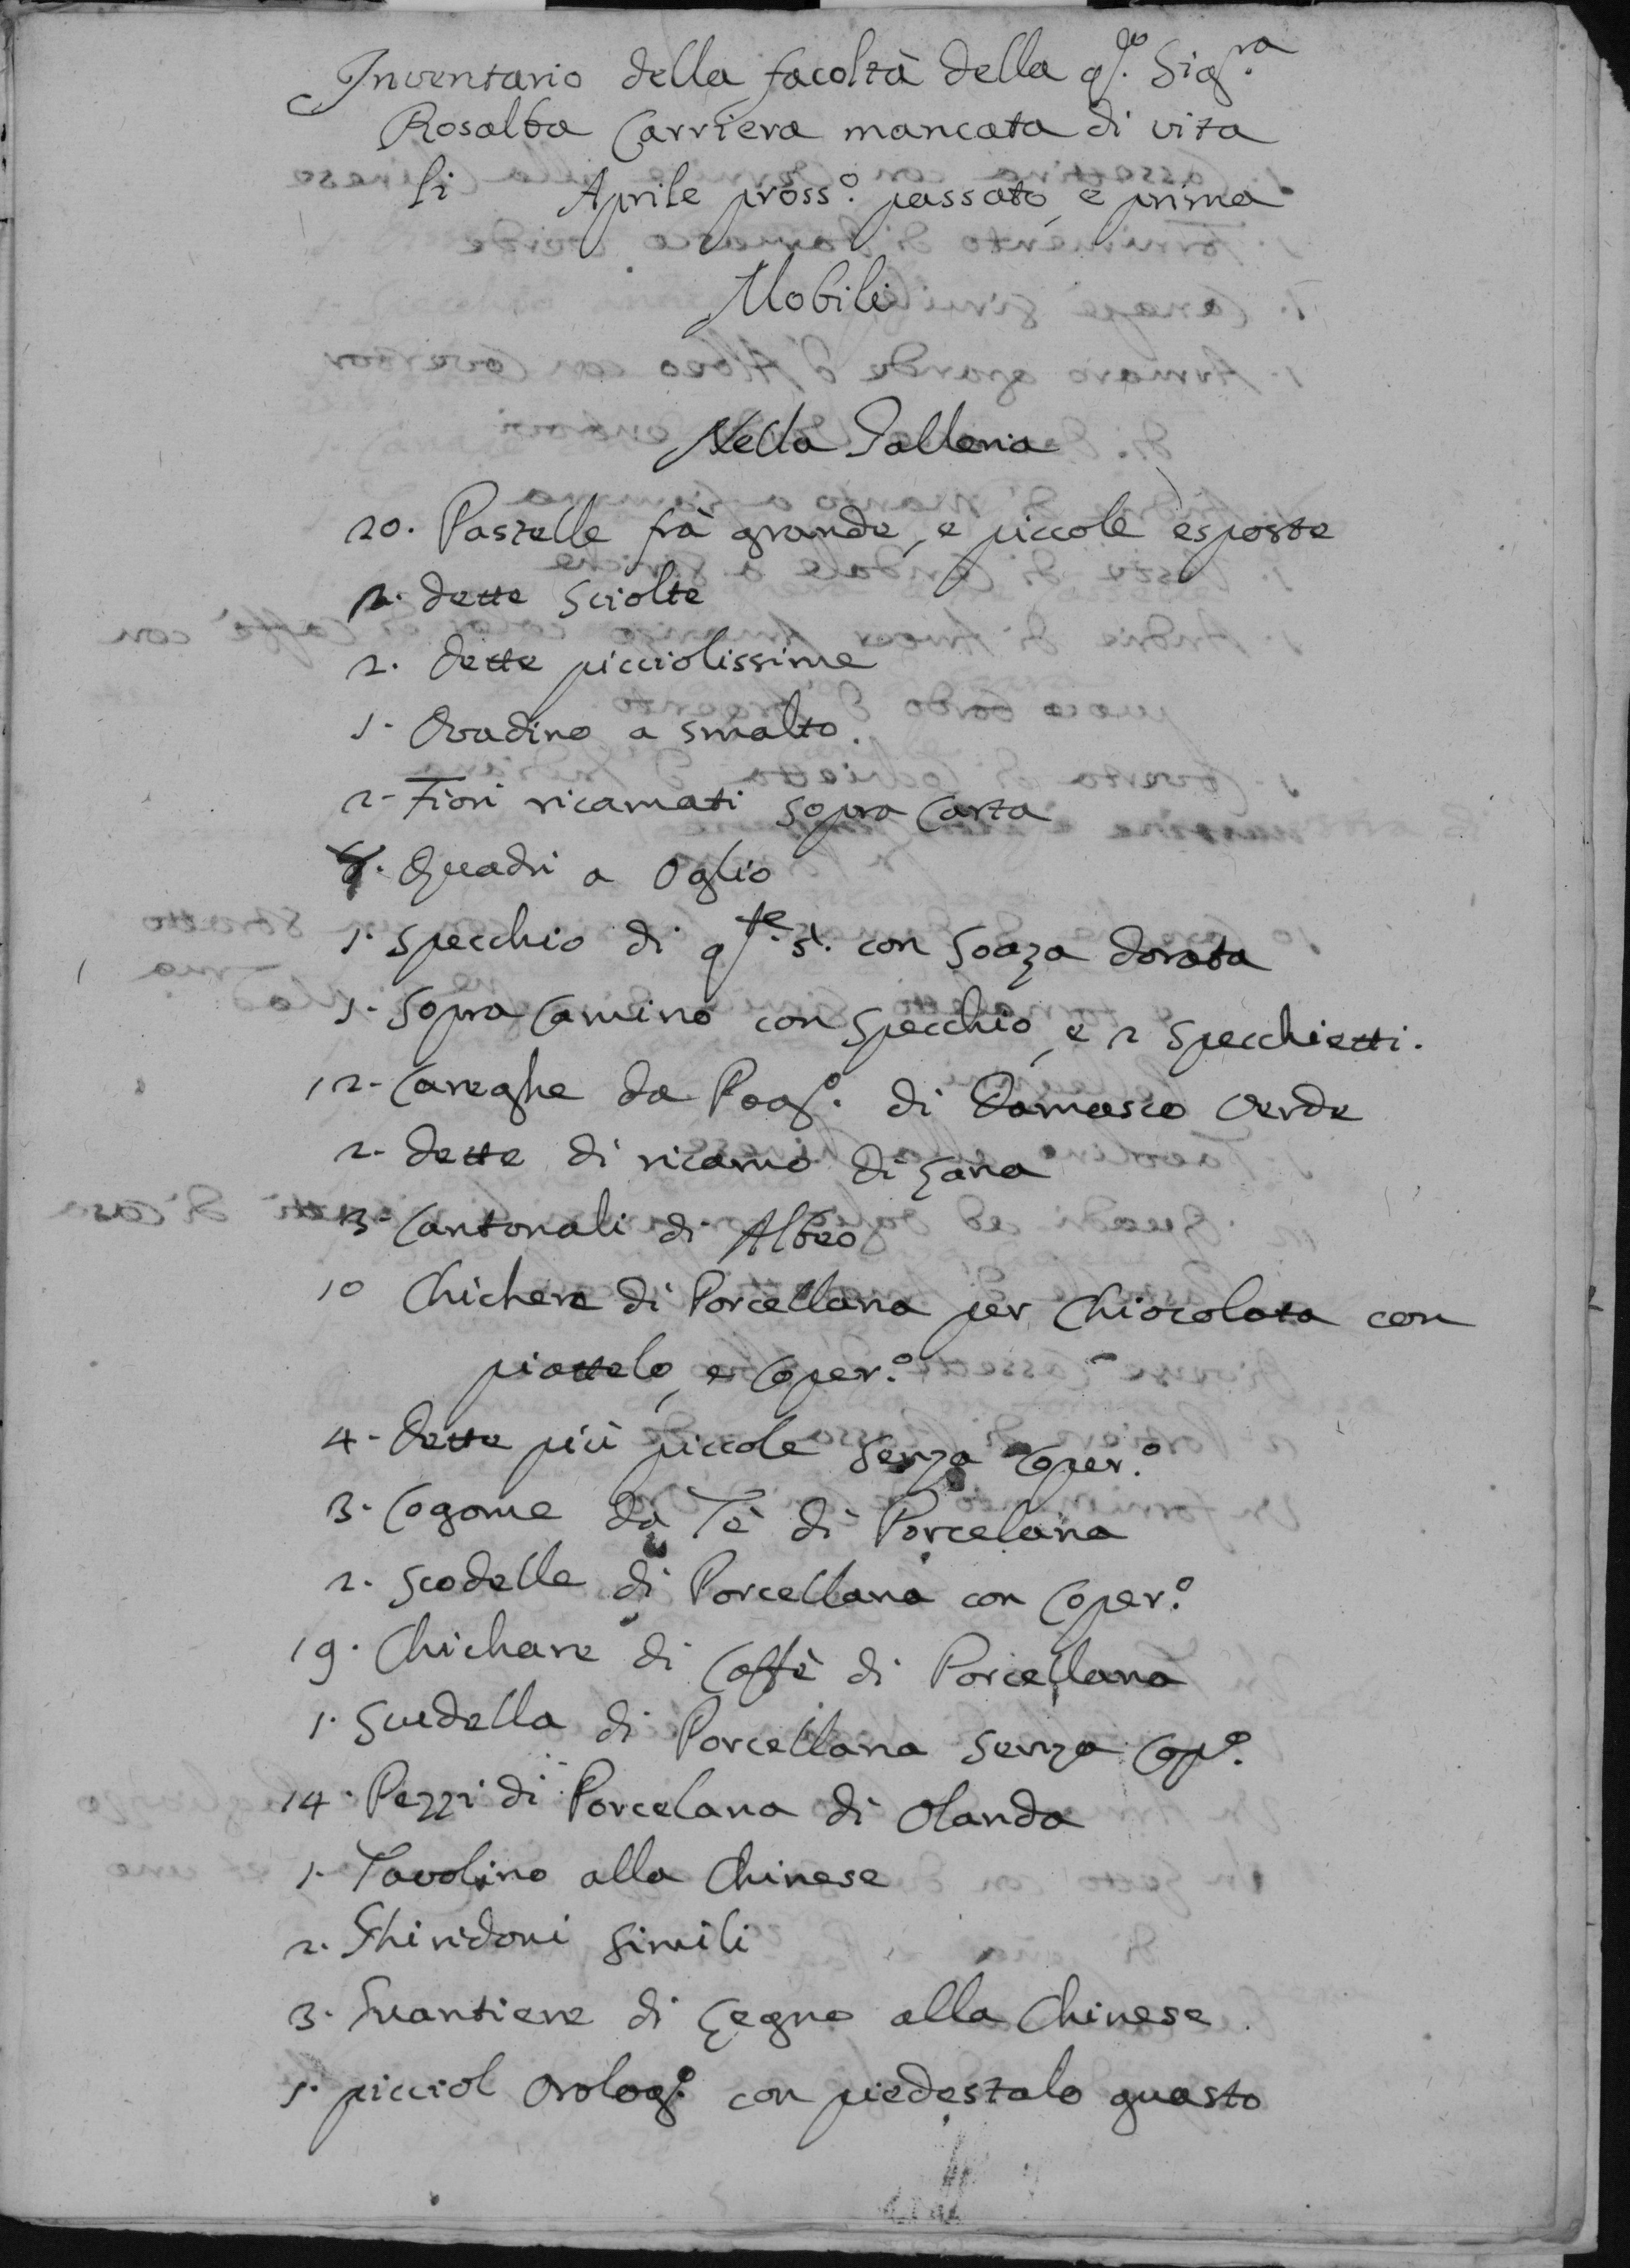 Inventario della facoltà della q.do Sig.ra
Rosalba Carriera mancata di vita
li Aprile pross.o passato, e prima
Mobili
Nella Galleria
20. Pastelle frà grande, e piccole esposte
2. dette sciolte
2. dette picciolissime
1. Ovadino a smalto.
2. Fiori ricamati sopra Carta
Quadri a Oglio
1. Specchio di q.te 5. con Soaza dorata
1. Sopra Camino con Specchio, e 2 Specchietti.
12. Careghe da Pog.o di Damasco Verde
2. dette di ricamo di Lana
3. Cantonali di Albeo
10 Chichere di Porcellana per Chiocolata con
piattelo, e Coper.o
4. dette più piccole senza Coper.o
3. Cogome da Tè di Porcelana
2. Scodelle di Porcellana con Coper.o
19. Chichare di Caffè di Porcellana
1. Scudella di Porcellana senza Cop.o
14. Pezzi di Porcelana di Olanda
1. Tavolino alla Chinese
2. Ghiridoni simili
3. Guantiere di Legno alla Chinese
1. picciol Orolog.o con piedestalo guasto